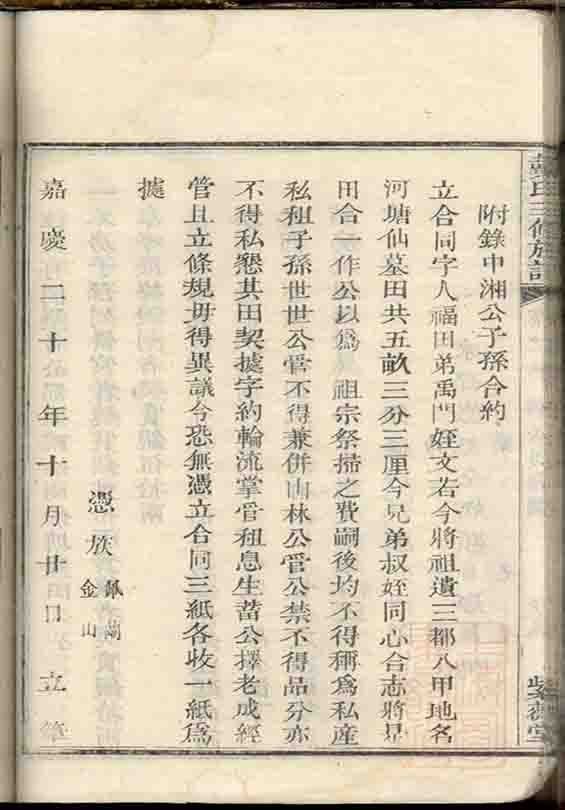 氏三修族譜
紫薇堂
附錄中湘公子孫合約
立合同字人福田弟禹門姪文若今將祖遺三都八甲地名
河塘仙墓田共五畝三分三厘今兄弟叔姪同心合志將是
田合一作公以爲 祖宗祭掃之費嗣後均不得稱爲私產
私租子孫世世公管不得兼併山林公管公禁不得品分亦
不得私懇其田契據字約輪流掌管租息生蓄公擇老成經
管且立條規毋得異議今恐無憑立合同三紙各收一紙爲
據
憑族
金山
嘉慶二十年十月廿日 立筆